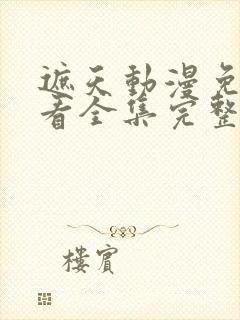 遮天動漫免
看全集完整
樓賓